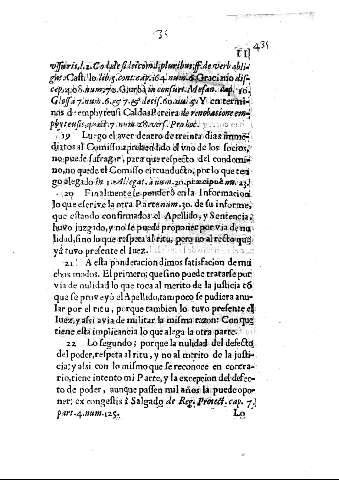 vssuris, l. 2. Cod. de
Castillo lib. 5. cont. cap. 164. num. 6. Gracimo dis-
cep. 408. num. 70. Giurba in
Glossa 7. num. 6. 57. 15. decis. 60. num. 4. Y en termi-
nos d emphyteusi Caldas Pereira de renobatione em-
phyteusis,
19 Luego el aver dentro de treinta dias imme-
diatos al Comisso aprehendido el vno de los socios,
no puede sufragar, para que respecto del condomi-
no, no quede el Comisso circunducto, por lo que ten-
go alegado in 1. Allegat. à num. 20. præcipuè nu. 23.
20 Finalmente se pondera en la Informacion
lo que escrive la otra Parte num. 30. de su informe,
que estando confirmados el Apellido, y Sentencia,
huvo juzgado, y no se puede propaner por via de nu
lidad, sino lo que respeta al ritu, pero no al recto que
yá tuvo presente el Iuez.
21 A esta ponderacion dimos satisfacion de mu
chos modos. El primero; que sino puede tratarse por
via de nulidad lo que toca al merito de la justicia cō
que se proveyò el Apellido, tampoco se pudiera anu-
lar por el ritu, porque tambien lo tuvo presente el
Iuez, y assi avia de militar la misma razon: Con que
tiene esta implicancia lo que alega la otra parte.
22 Lo segundo; porque la nulidad del defecto
del poder, respeta al ritu, y no al merito de la justi-
cia; y assi con lo mismo que se reconoce en contra-
rio, tiene intento mi Parte, y la excepcion del defec-
to de poder, aunque passen mil años la puede opo-
ner; ex congestis à Salgado de Reg. Protect. cap. 7.
part. 4. num. 125. Lo